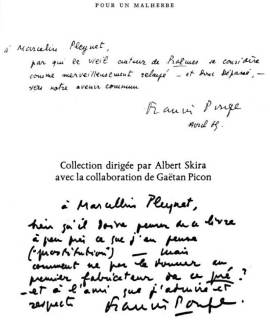 POUR UN MALHERBE
à Marcelin Pleynet,
par qui ce vieil auteur de Proêmes se considère
comme merveilleusement relayé - et donc dépassé, -
vers notre avenir commun
Francis Ponge
Avril 65.
Collection dirigée par Albert Skira
avec la collaboration de Gaëtan Picon
à Marcellin Pleynet,
bien qu'il doive penser de ce livre
à peu près ce que j'en pense
("prostitution") — mais
comment ne pas le donner au
premier fabricateur de ce pré?
- et à l'ami que j'admire et
respecte
Francis Ponge.